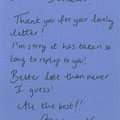 Thank you for your lovely
letter!
I'm sorry it has taken so
long to reply to you!
Better late than never
I guess!
All the best!!